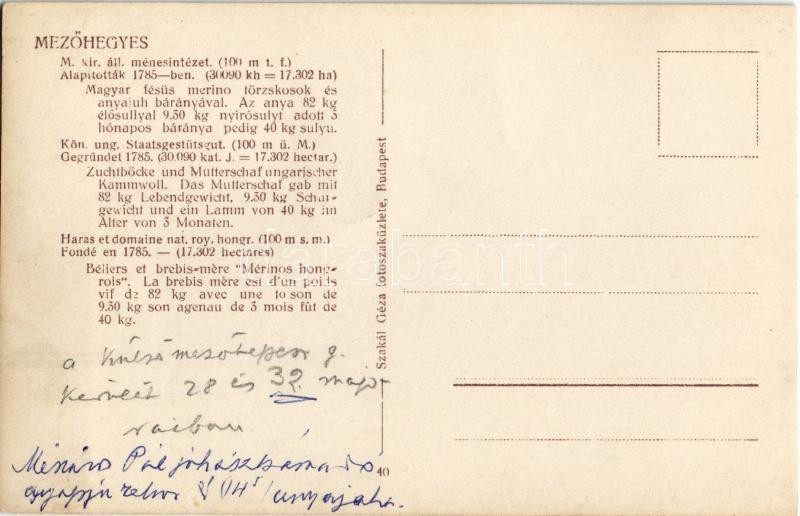 MEZŐHEGYES
M. kir. áll. ménesintézet. (100 m t. f.)
Alapították 1785—ben. (30090 kh = 17.302 ha)
Magyar fésüs merino törzskosok és
anyajuh bárányával. Az anya 82 kg
élősullyal 9.50 kg nyirósulyt adott 3
hónapos báránya pedig 40 kg sulyu.
Kön. ung. Staatsgestütsgut. (100 m ü. M.)
Gegründet 1785. (30.090 kat. J. = 17.302 hectar.)
Zuchtböcke und Mutterschaf ungarischer
Kammwoll. Das Mutterschaf gab mit
82 kg Lebendgewicht, 9.50 kg Schur-
gewicht und ein Lamm von 40 kg im
Alter von 3 Monaten.
Haras et domaine nat. roy. hongr. (100 m s. m.)
Fondé en 1785. — (17.302 hectares)
Béliers et brebis-mère "Mérinos hong-
rois". La brebis mère est d'un poids
vif de 82 kg avec une toison de
9.50 kg son agenau de 3 mois fût de
40 kg.
a g.
28 és 32.
Pál
Szakál Géza fotoszaküzlete, Budapest
40
darabanth